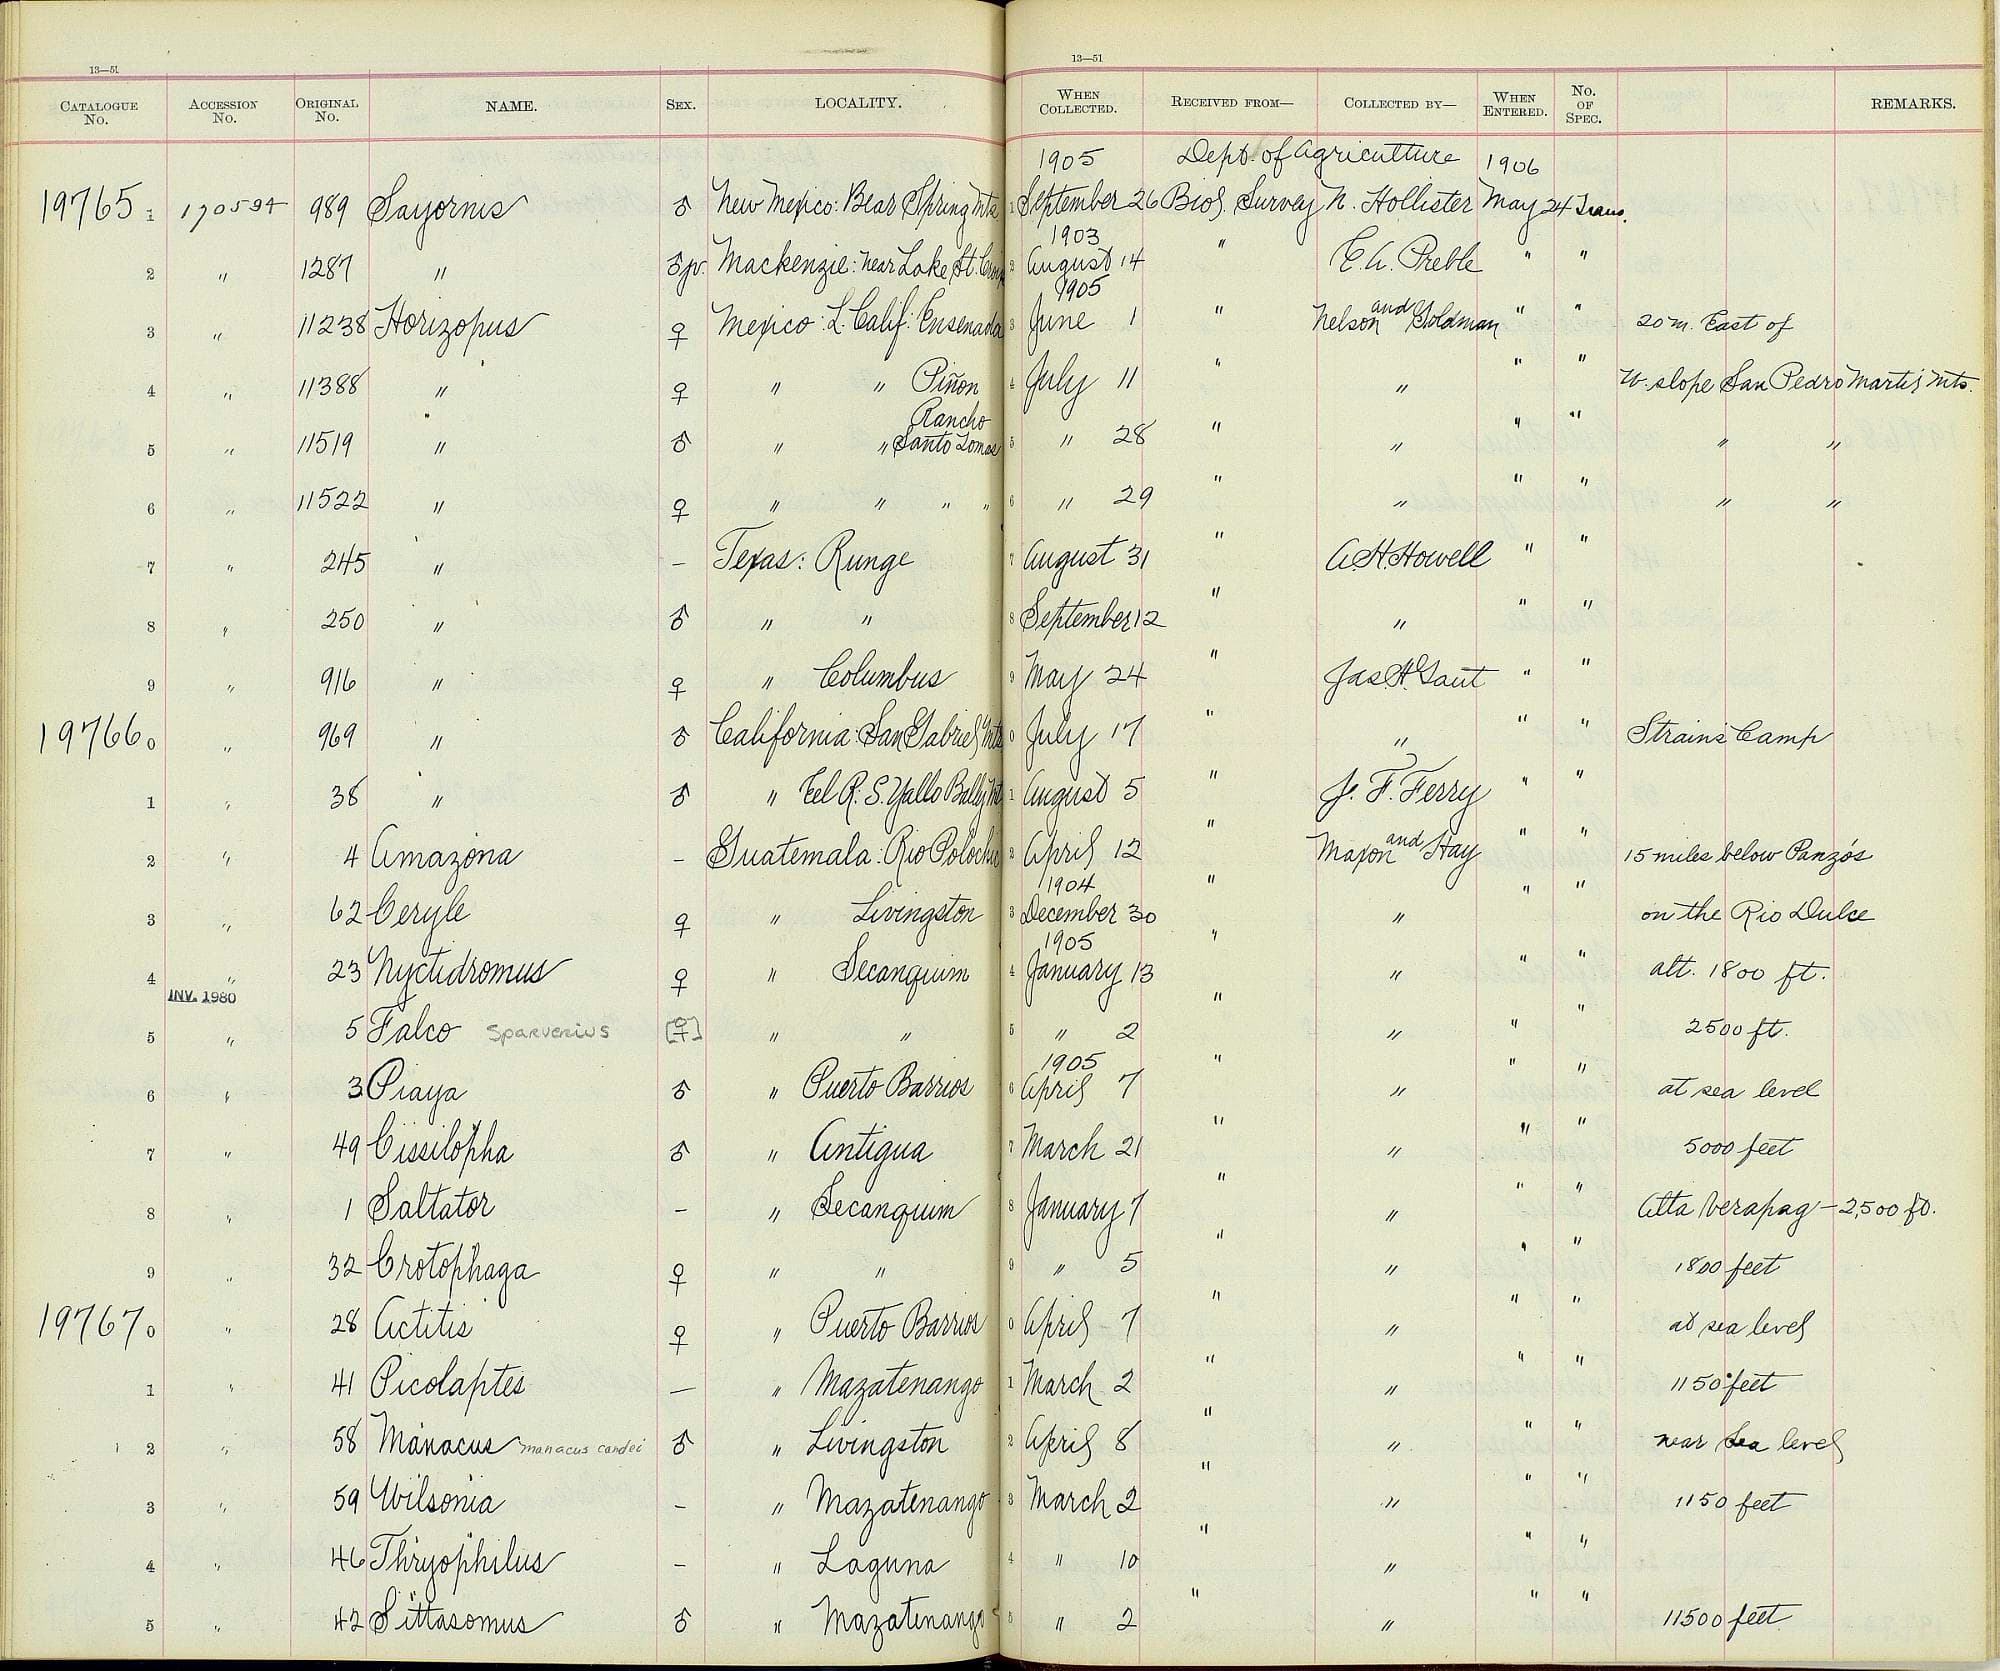 13—51
13—51
CATALOGUE No. ACCESSION No. ORIGINAL No. NAME. SEX. LOCALITY. WHEN COLLECTED. RECEIVED FROM— COLLECTED BY— WHEN ENTERED. No. OF SPEC. REMARKS.
1905 Dept. of Agriculture 1906
19765 1 170594 989 Sayornis ♂ New Mexico: Bear Spring Mts. 1 September 26 Biol. Survey N. Hollister May 24 Trans.
1903
2 " 1287 " ♂ jv. Mackenzie: near Lake St. Croix 2 August 14 " E. A. Preble " "
1905
3 " 11238 Horizopus ♀ Mexico: L. Calif: Ensenada 3 June 1 " Nelson and Goldman " " 20 m. East of
4 " 11388 " ♀ " " Piñon 4 July 11 " " " " W. slope San Pedro Martir Mts.
Rancho
5 " 11519 " ♂ " " Santo Tomas 5 " 28 " " " " " "
6 " 11522 " ♀ " " " " 6 " 29 " " " " " "
7 " 245 " – Texas: Runge 7 August 31 " A. H. Howell " "
8 " 250 " ♂ " " 8 September 12 " " " "
9 " 916 " ♀ " Columbus 9 May 24 " Jas. H. Gaut " "
19766 0 " 969 " ♂ California: San Gabriel Mts 0 July 17 " " " " Strains Camp
1 " 38 " ♂ " Eel R. S. Yallo Bally Mt 1 August 5 " J. F. Ferry " "
2 " 4 Amazona – Guatemala: Rio Polochic 2 April 12 " Maxon and Hay " " 15 miles below Panzós
1904
3 " 62 Ceryle ♀ " Livingston 3 December 30 " " " " on the Rio Dulce
1905
4 " 23 Nyctidromus ♀ " Secanquim 4 January 13 " " " " alt. 1800 ft.
INV. 1980
5 " 5 Falco Sparverius [♀] " " 5 " 2 " " " " 2500 ft.
1905
6 " 3 Piaya ♂ " Puerto Barrios 6 April 7 " " " " at sea level
7 " 49 Cissilopha ♂ " Antigua 7 March 21 " " " " 5000 feet
8 " 1 Saltator – " Secanquim 8 January 7 " " " " Alta Verapaz – 2,500 ft.
9 " 32 Crotophaga ♀ " " 9 " 5 " " " " 1800 feet
19767 0 " 28 Actitis ♀ " Puerto Barrios 0 April 7 " " " " at sea level
1 " 41 Picolaptes – " Mazatenango 1 March 2 " " " " 1150 feet
2 " 58 Manacus manacus candei ♂ " Livingston 2 April 8 " " " " near Sea level
3 " 59 Wilsonia – " Mazatenango 3 March 2 " " " " 1150 feet
4 " 46 Thryophilus – " Laguna 4 " 10 " " " "
5 " 42 Sittasomus ♂ " Mazatenango 5 " 2 " " " " 11500 feet